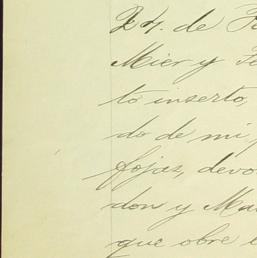 24. de Fe
Mier y Te
to inserto,
do de mi
fojas, devo
don y Ma
que obre e